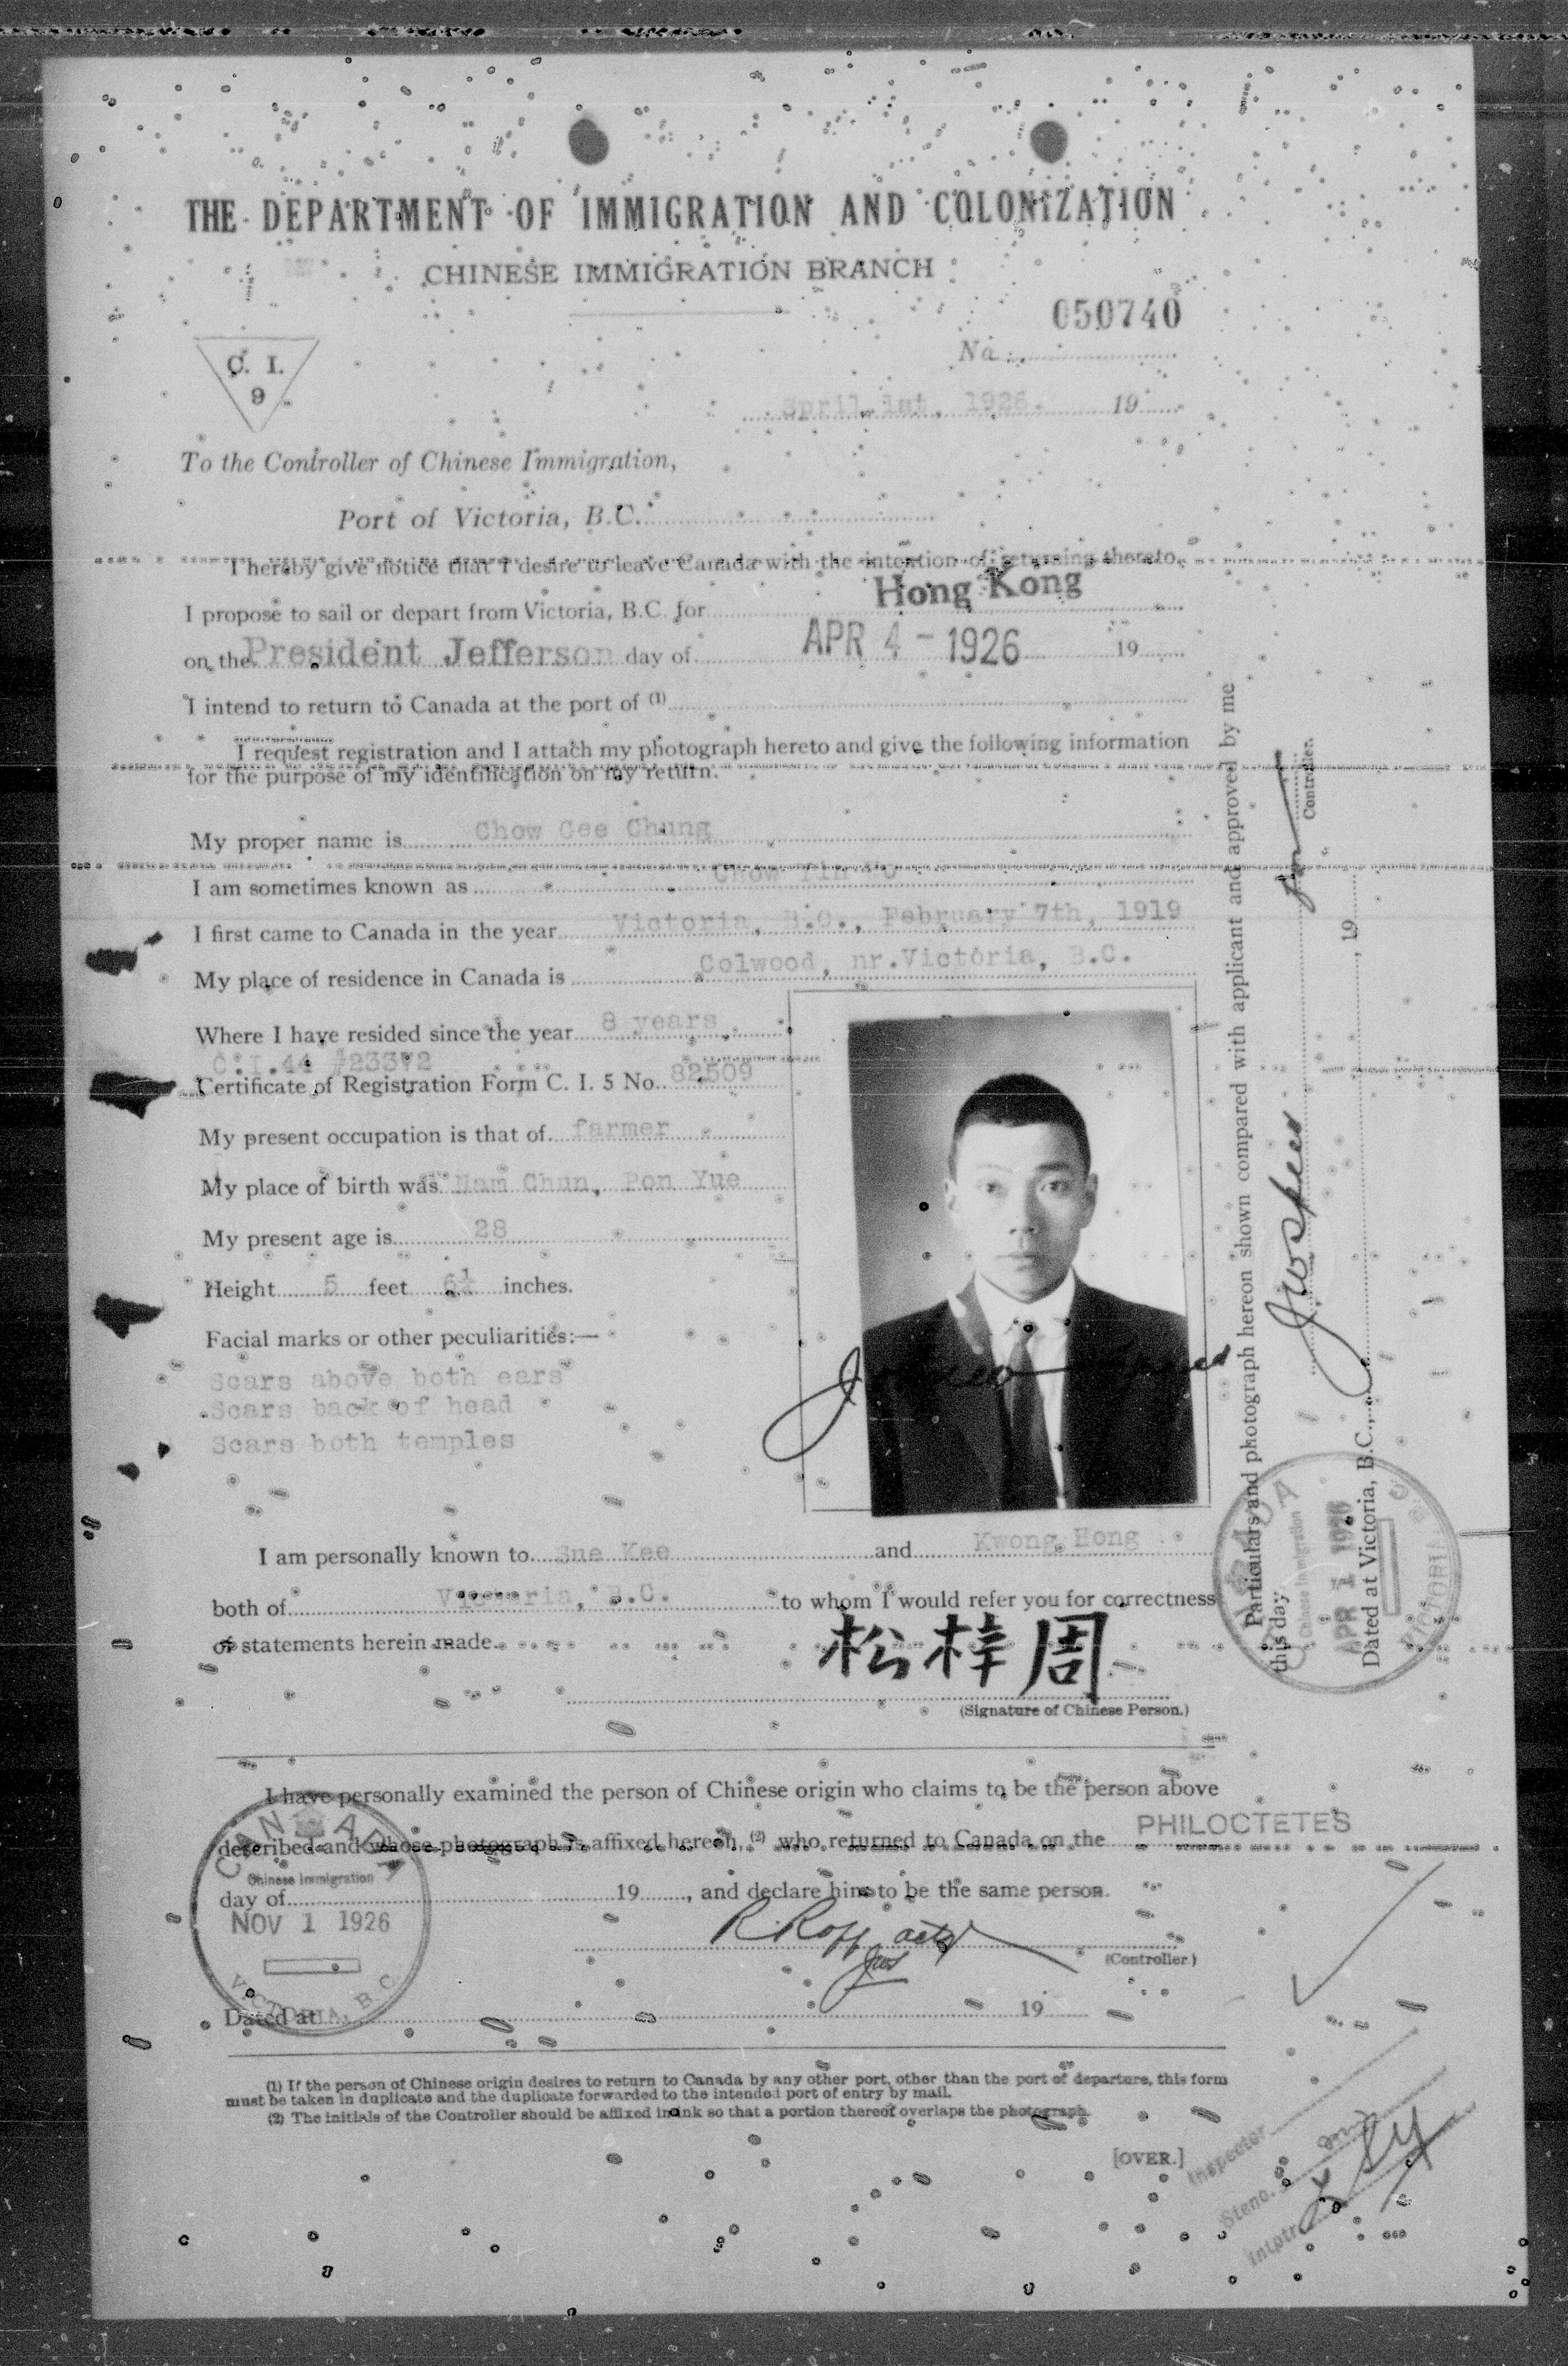 THE DEPARTMENT OF IMMIGRATION AND COLONIZATION
CHINESE IMMIGRATION BRANCH
050740
No.
C. I.
9
April 1st, 1926. 19
To the Controller of Chinese Immigration,
Port of Victoria, B.C.
I hereby give notice that I desire to leave Canada with the intention of returning thereto.
I propose to sail or depart from Victoria, B.C. for Hong Kong
on the President Jefferson day of APR 4 - 1926 19
I intend to return to Canada at the port of (1)
I request registration and I attach my photograph hereto and give the following information
for the purpose of my identification on my return.
My proper name is Chow Cee Chung
I am sometimes known as Chow
I first came to Canada in the year Victoria, B.C., February 7th, 1919
My place of residence in Canada is Colwood, nr.Victoria, B.C.
Where I have resided since the year 8 years
C.I.44 #23372
Certificate of Registration Form C. I. 5 No. 82509
My present occupation is that of farmer
My place of birth was Nam Chun, Pon Yue
My present age is 28
Height 5 feet 6½ inches.
Facial marks or other peculiarities:—
Scars above both ears
Scars back of head
Scars both temples
I am personally known to Sne Kee and Kwong Hong
both of Victoria, B.C. to whom I would refer you for correctness
of statements herein made.
松梓周
(Signature of Chinese Person.)
I have personally examined the person of Chinese origin who claims to be the person above
described and whose photograph is affixed hereon, (2) who returned to Canada on the PHILOCTETES
day of 19 , and declare him to be the same person.
R. Roff actg
(Controller)
Dated at 19
CANADA
Chinese Immigration
NOV 1 1926
VICTORIA, B.C.
(1) If the person of Chinese origin desires to return to Canada by any other port, other than the port of departure, this form
must be taken in duplicate and the duplicate forwarded to the intended port of entry by mail.
(2) The initials of the Controller should be affixed in ink so that a portion thereof overlaps the photograph.
[OVER.]
Particulars and photograph hereon shown compared with applicant and approved by me
this day
Controller.
Dated at Victoria, B.C., , 19
CANADA
Chinese Immigration
APR 1 1926
VICTORIA B.C.
Inspector
Steno.
Intptr.